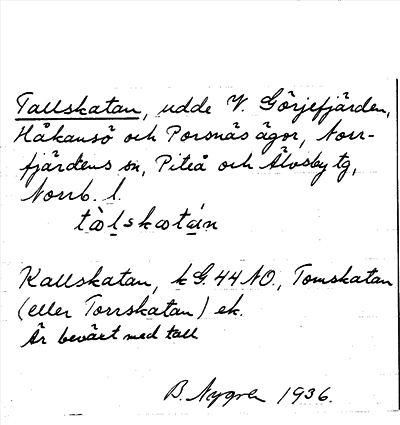 Tallskatan, udde V. Görjefjärden,
Håkansö och Porsnäs ägor, Norr-
fjärdens sn, Piteå och Älvsby tg,
Norrb. l.
tàlskatán
Kallskatan, k G. 44 NO., Tomskatan
(eller Torrskatan) ek.
Är beväxt med tall
B. Nygren 1936.